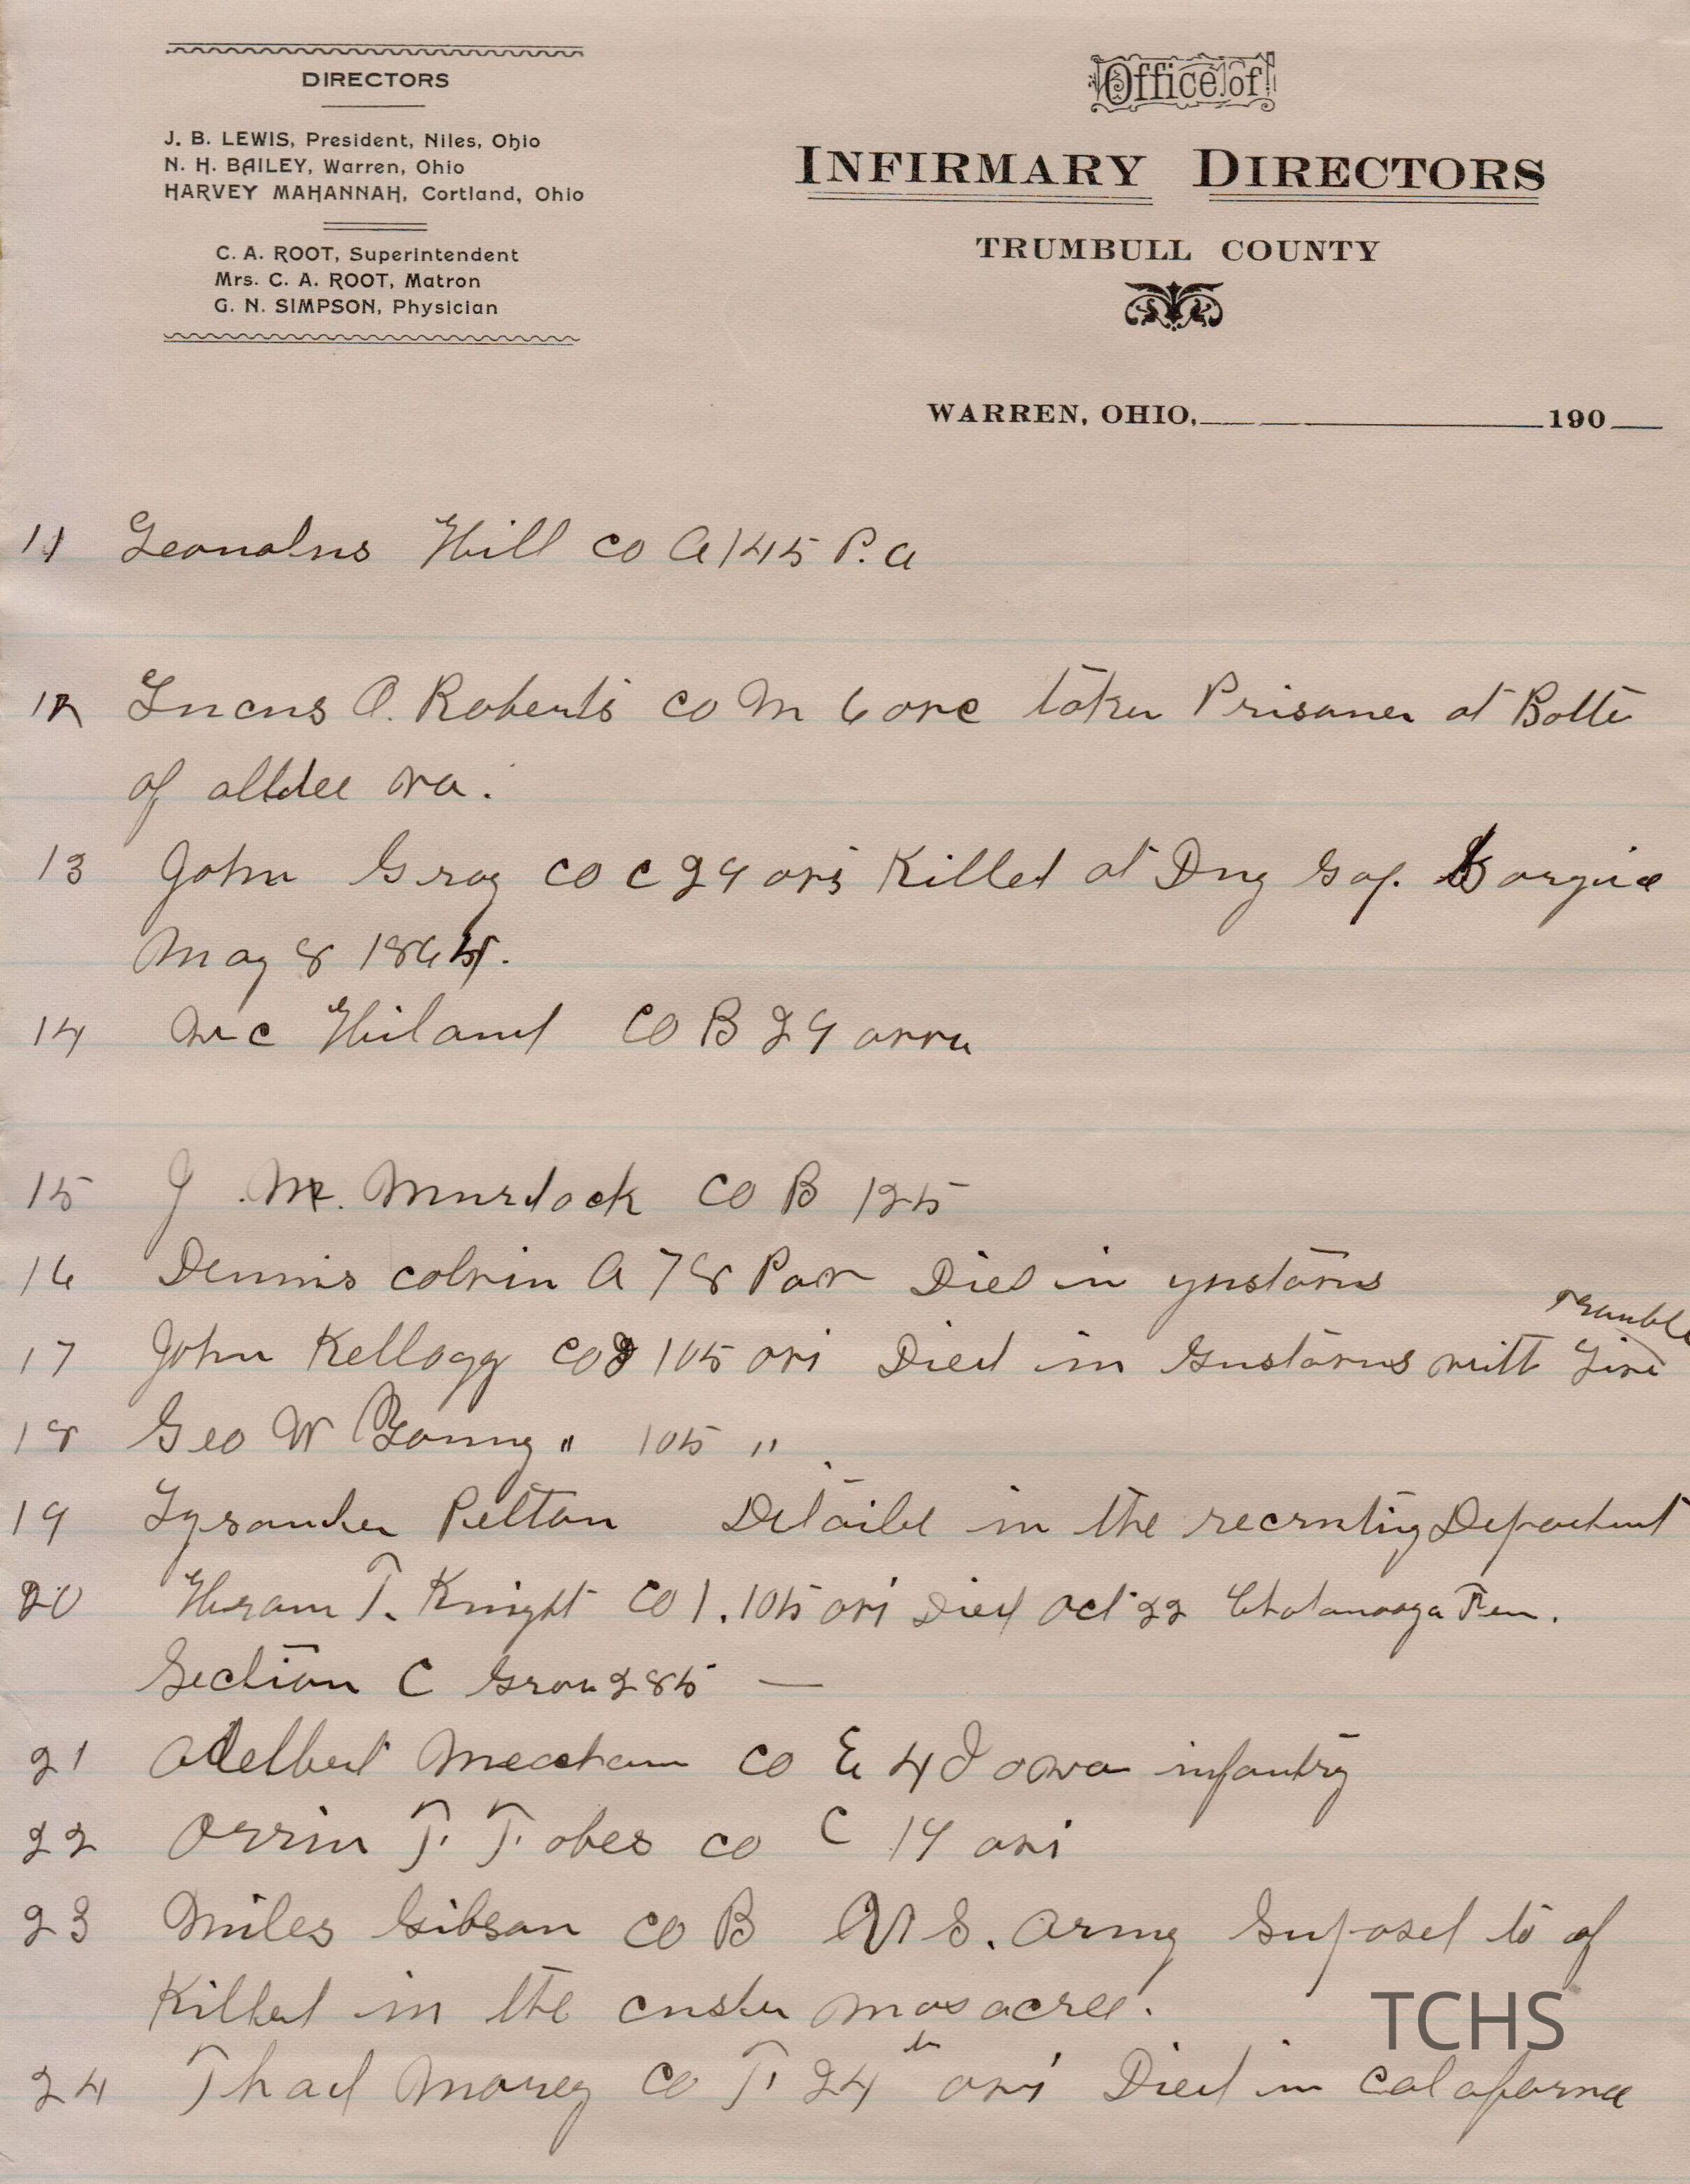 DIRECTORS
J. B. LEWIS, President, Niles, Ohio
N. H. BAILEY, Warren, Ohio
HARVEY MAHANNAH, Cortland, Ohio
C. A. ROOT, Superintendent
Mrs. C. A. ROOT, Matron
G. N. SIMPSON, Physician
Office of
INFIRMARY DIRECTORS
TRUMBULL COUNTY
WARREN, OHIO, 190
11 Hill co A 145 P. a
12 Lucus O. Roberts co M 6 ovc taken Prisoner at Battle
of alldee va.
13 John Gray co C 29 ovi Killed at Dug Gap. Gorgia
May 8 1864.
14 Mc Hiland co B 29
15 J M. Murdock co B 125
16 Dennis colvin A 78 Died in
17 John Kellogg co 105 ovi Died in Gustavus with
Trouble
18 Geo W Young " 105 "
19 Lysander Pelton Detaild in the recruting Department
20 Hiram T. Knight co I. 105 ovi Died Oct 22 Chatanooga Ten.
Section C Grav 285 —
21 Adelbert Meacham co E 4 Iowa infantry
22 Orrin F. Fobes co C 19 ovi
23 Miles Gibson co B U S. Army Suposed to of
Killed in the custer masacree.
24 Thad Morey co F 24th ovi Died in Calafornia
TCHS